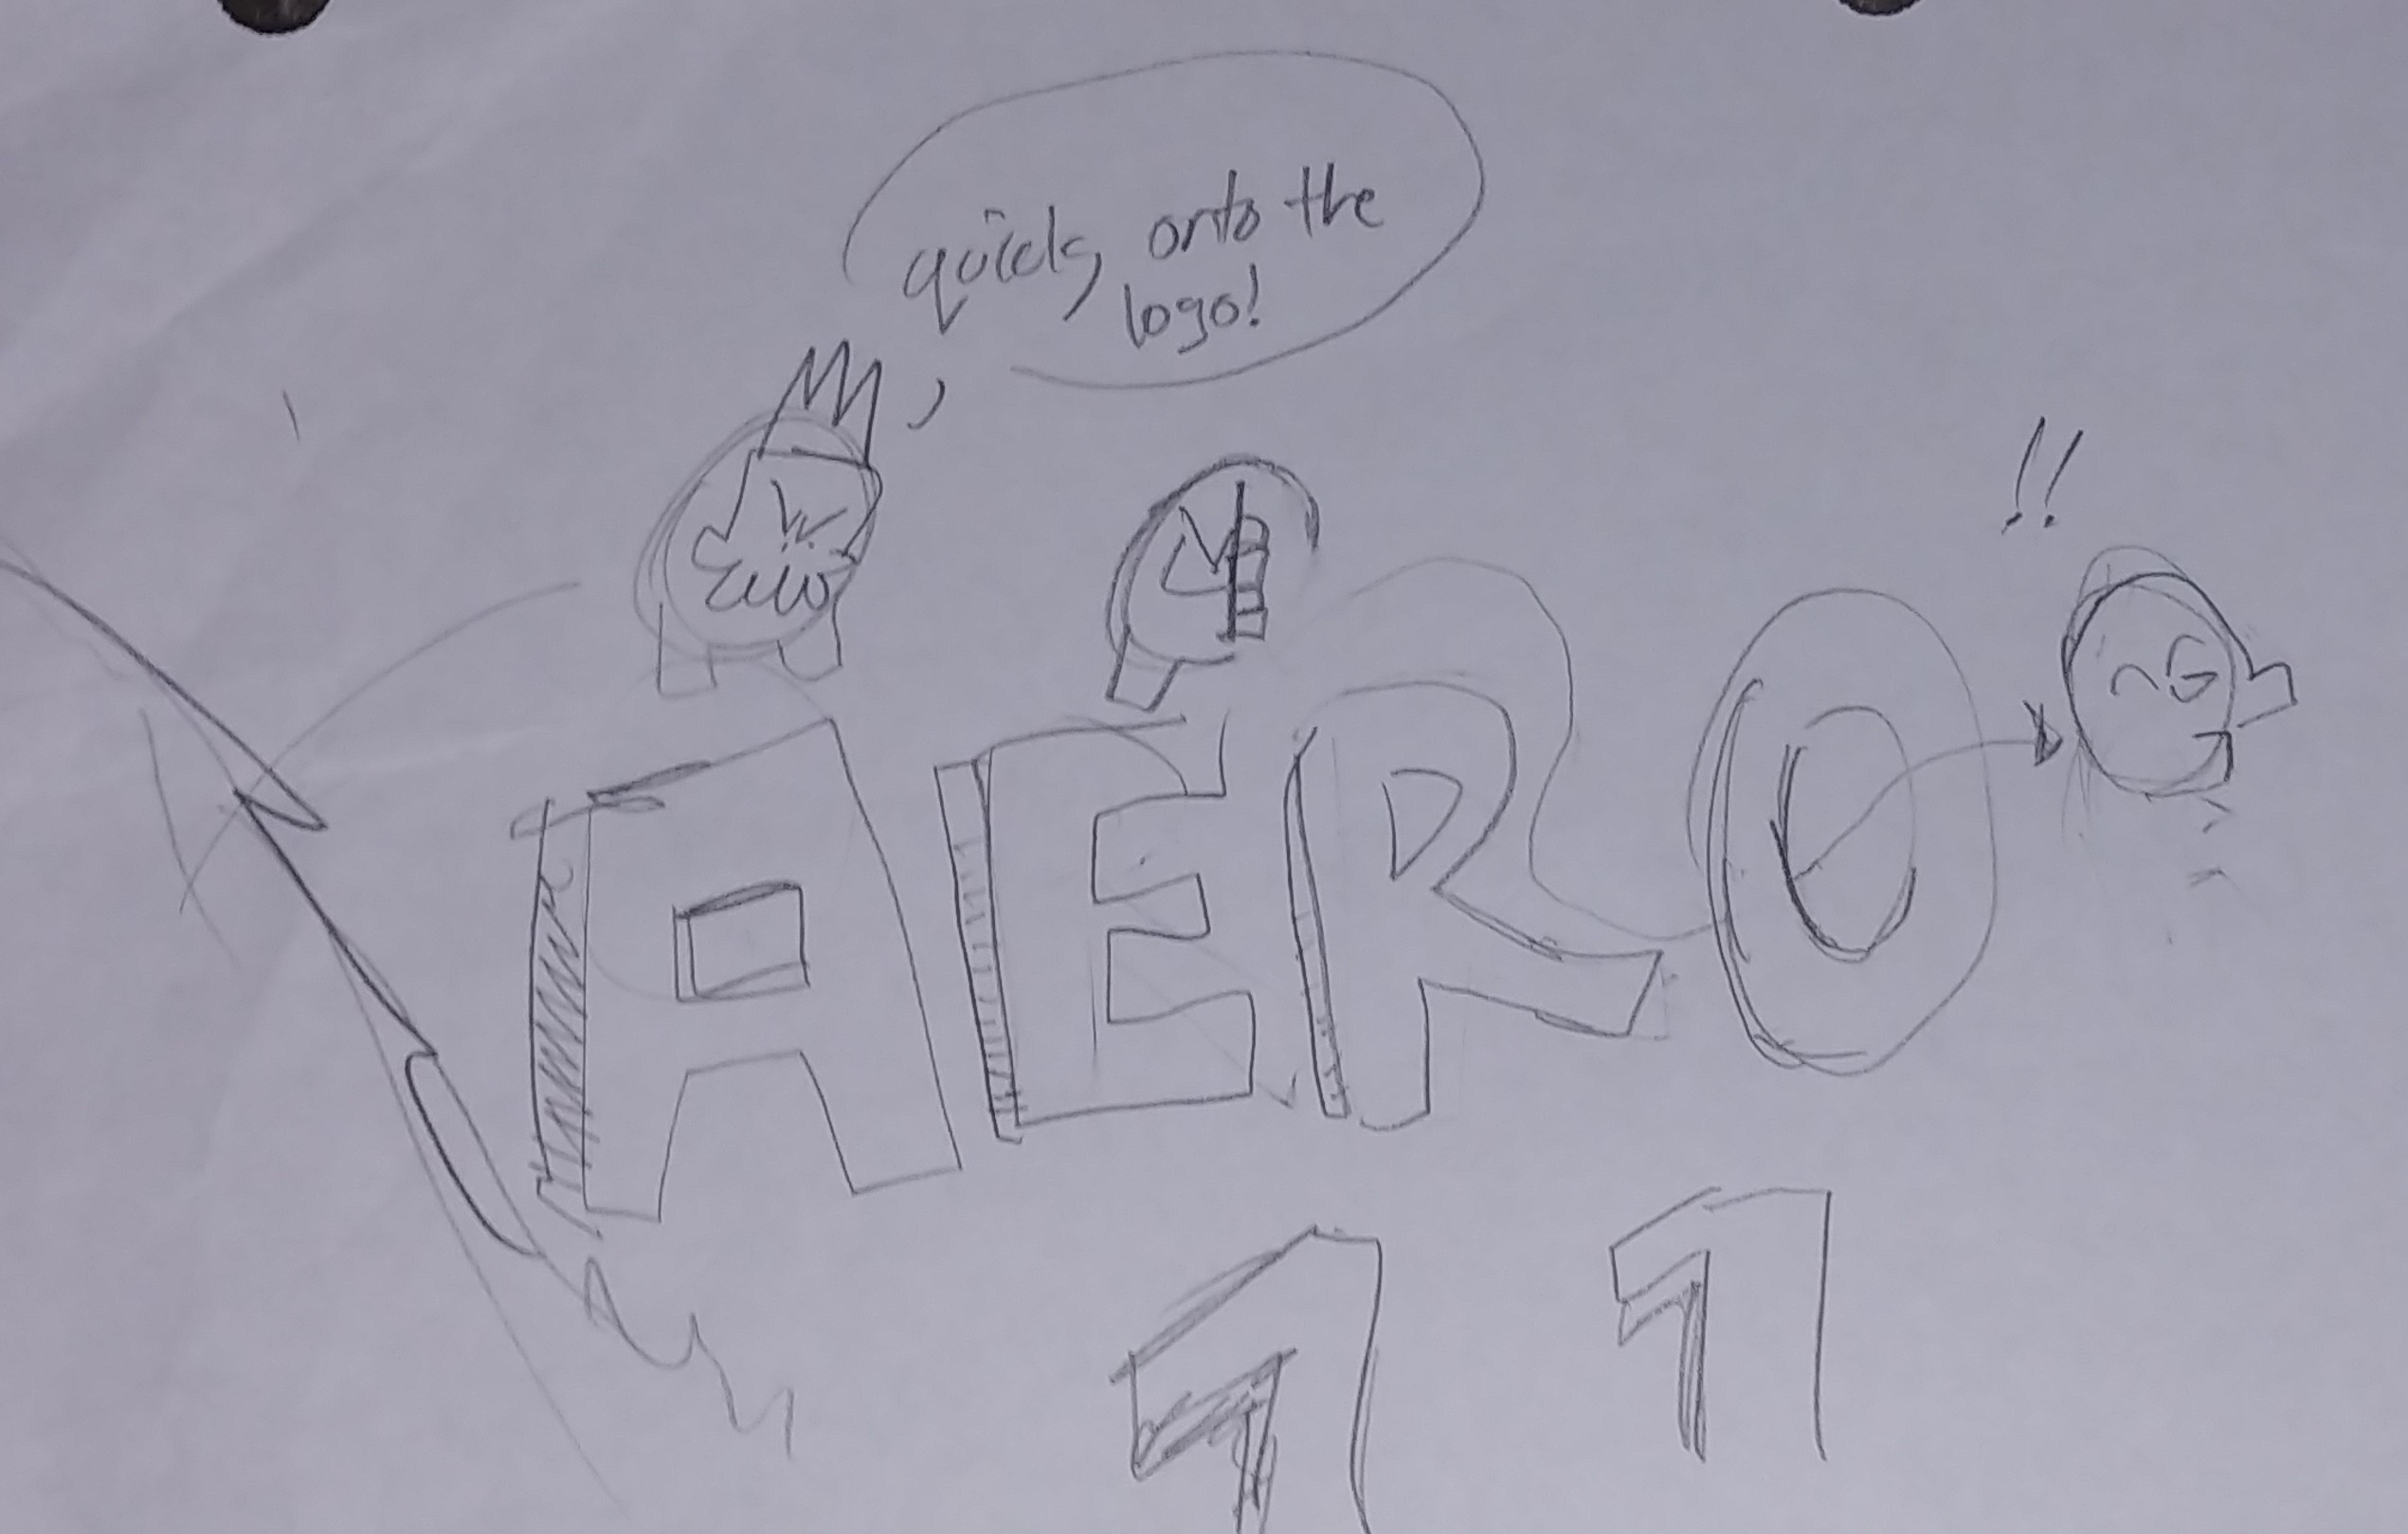 quick, onto the
logo!
!!
AERO
1 1